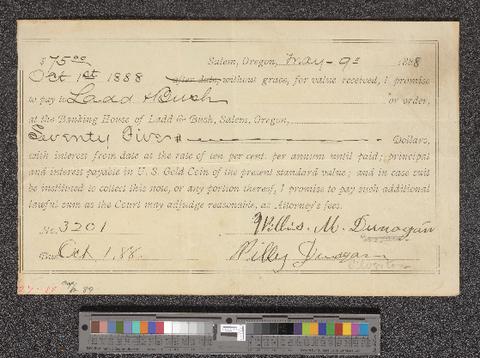 $75.00 Salem, Oregon, May - 9th 1888
Oct 1st 1888 after date, without grace, for value received, I promise
to pay to Ladd & Bush or order,
at the Banking House of Ladd & Bush, Salem, Oregon,
Seventy five Dollars,
with interest from date at the rate of ten per cent. per annum until paid; principal
and interest payable in U. S. Gold Coin of the present standard value; and in case suit
be instituted to collect this note, or any portion thereof, I promise to pay such additional
lawful sum as the Court may adjudge reasonable, as Attorney's fees.
No. 3201 Willis. M. Dunagan
Due Oct 1, 88. Willy Dunagan